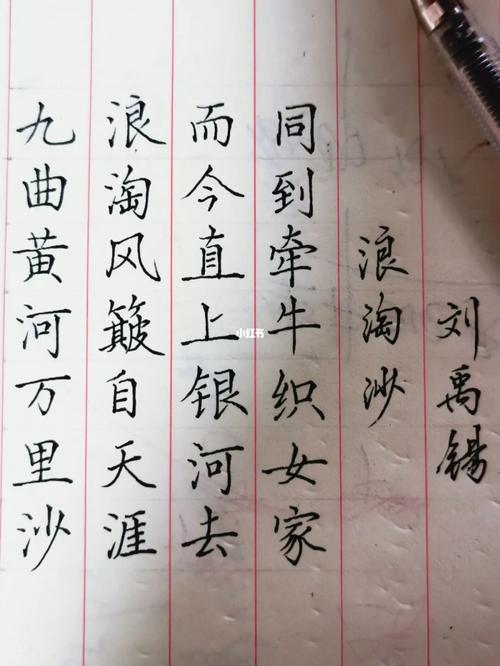 九曲黄河万里沙
浪淘风簸自天涯
而今直上银河去
同到牵牛织女家
浪淘沙
刘禹锡
小红书